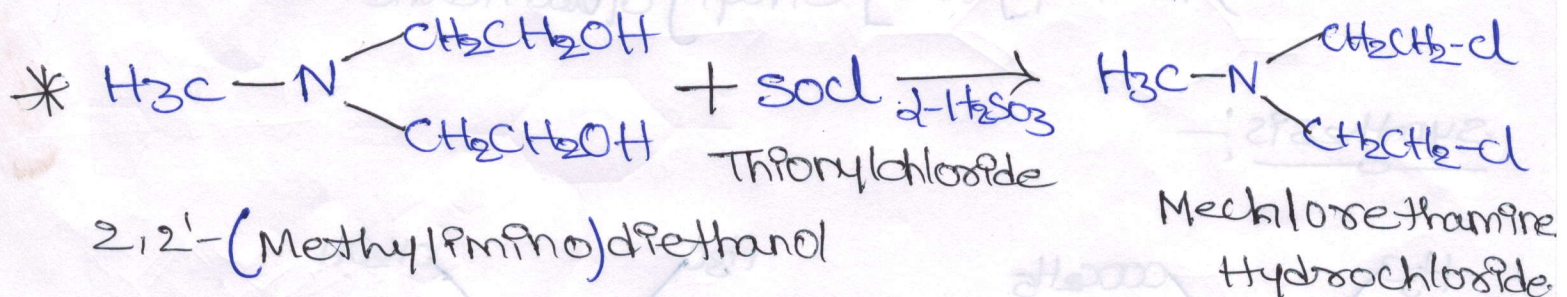 * H3C-N CH2CH2OH CH2CH2OH + SOCl → H3C-N CH2CH2-Cl CH2CH2-Cl
-H2SO3
Thionylchloride
2,2'-(Methylimino)diethanol
Mechlorethamine
Hydrochloride.